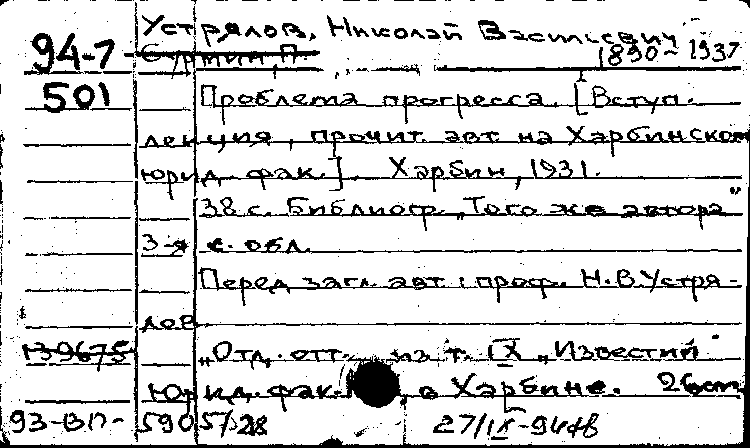 Устрялов, Николай Васильевич
94-7 1890-1937
501 Проблема прогресса. [Вступ.
лекция, прочит. авт. на Харбинском
юрид. фак.]. Харбин, 1931.
38 с. Библиогр. „Того же автора"
3-я с. обл.
Перед загл. авт.: проф. Н.В.Устря-
лов.
139675 „Отд. отт. из т. IX „Известий
Юрид. фак. в Харбине.
93-ВП- 5905/28 27/IX-94